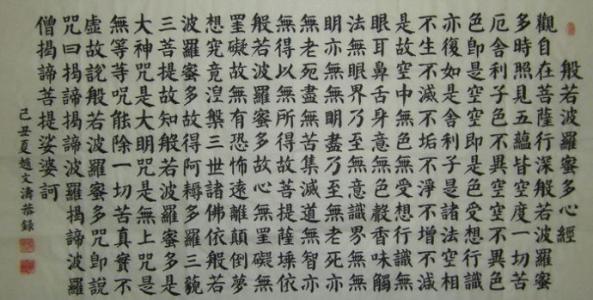 般若波羅蜜多心經
觀自在菩薩行深般若波羅蜜
多時照見五蘊皆空度一切苦
厄舍利子色不異空空不異色
色即是空空即是色受想行識
亦復如是舍利子是諸法空相
不生不滅不垢不淨不增不減
是故空中無色無受想行識無
眼耳鼻舌身意無色聲香味觸
法無眼界乃至無意識界無無
明亦無無明盡乃至無老死亦
無老死盡無苦集滅道無智亦
無得以無所得故菩提薩埵依
般若波羅蜜多故心無罣礙無
罣礙故無有恐怖遠離顛倒夢
想究竟涅槃三世諸佛依般若
波羅蜜多故得阿耨多羅三藐
三菩提故知般若波羅蜜多是
大神咒是大明咒是無上咒是
無等等咒能除一切苦真實不
虛故說般若波羅蜜多咒即說
咒曰揭諦揭諦波羅揭諦波羅
僧揭諦菩提娑婆訶
己丑夏趙文濤恭錄